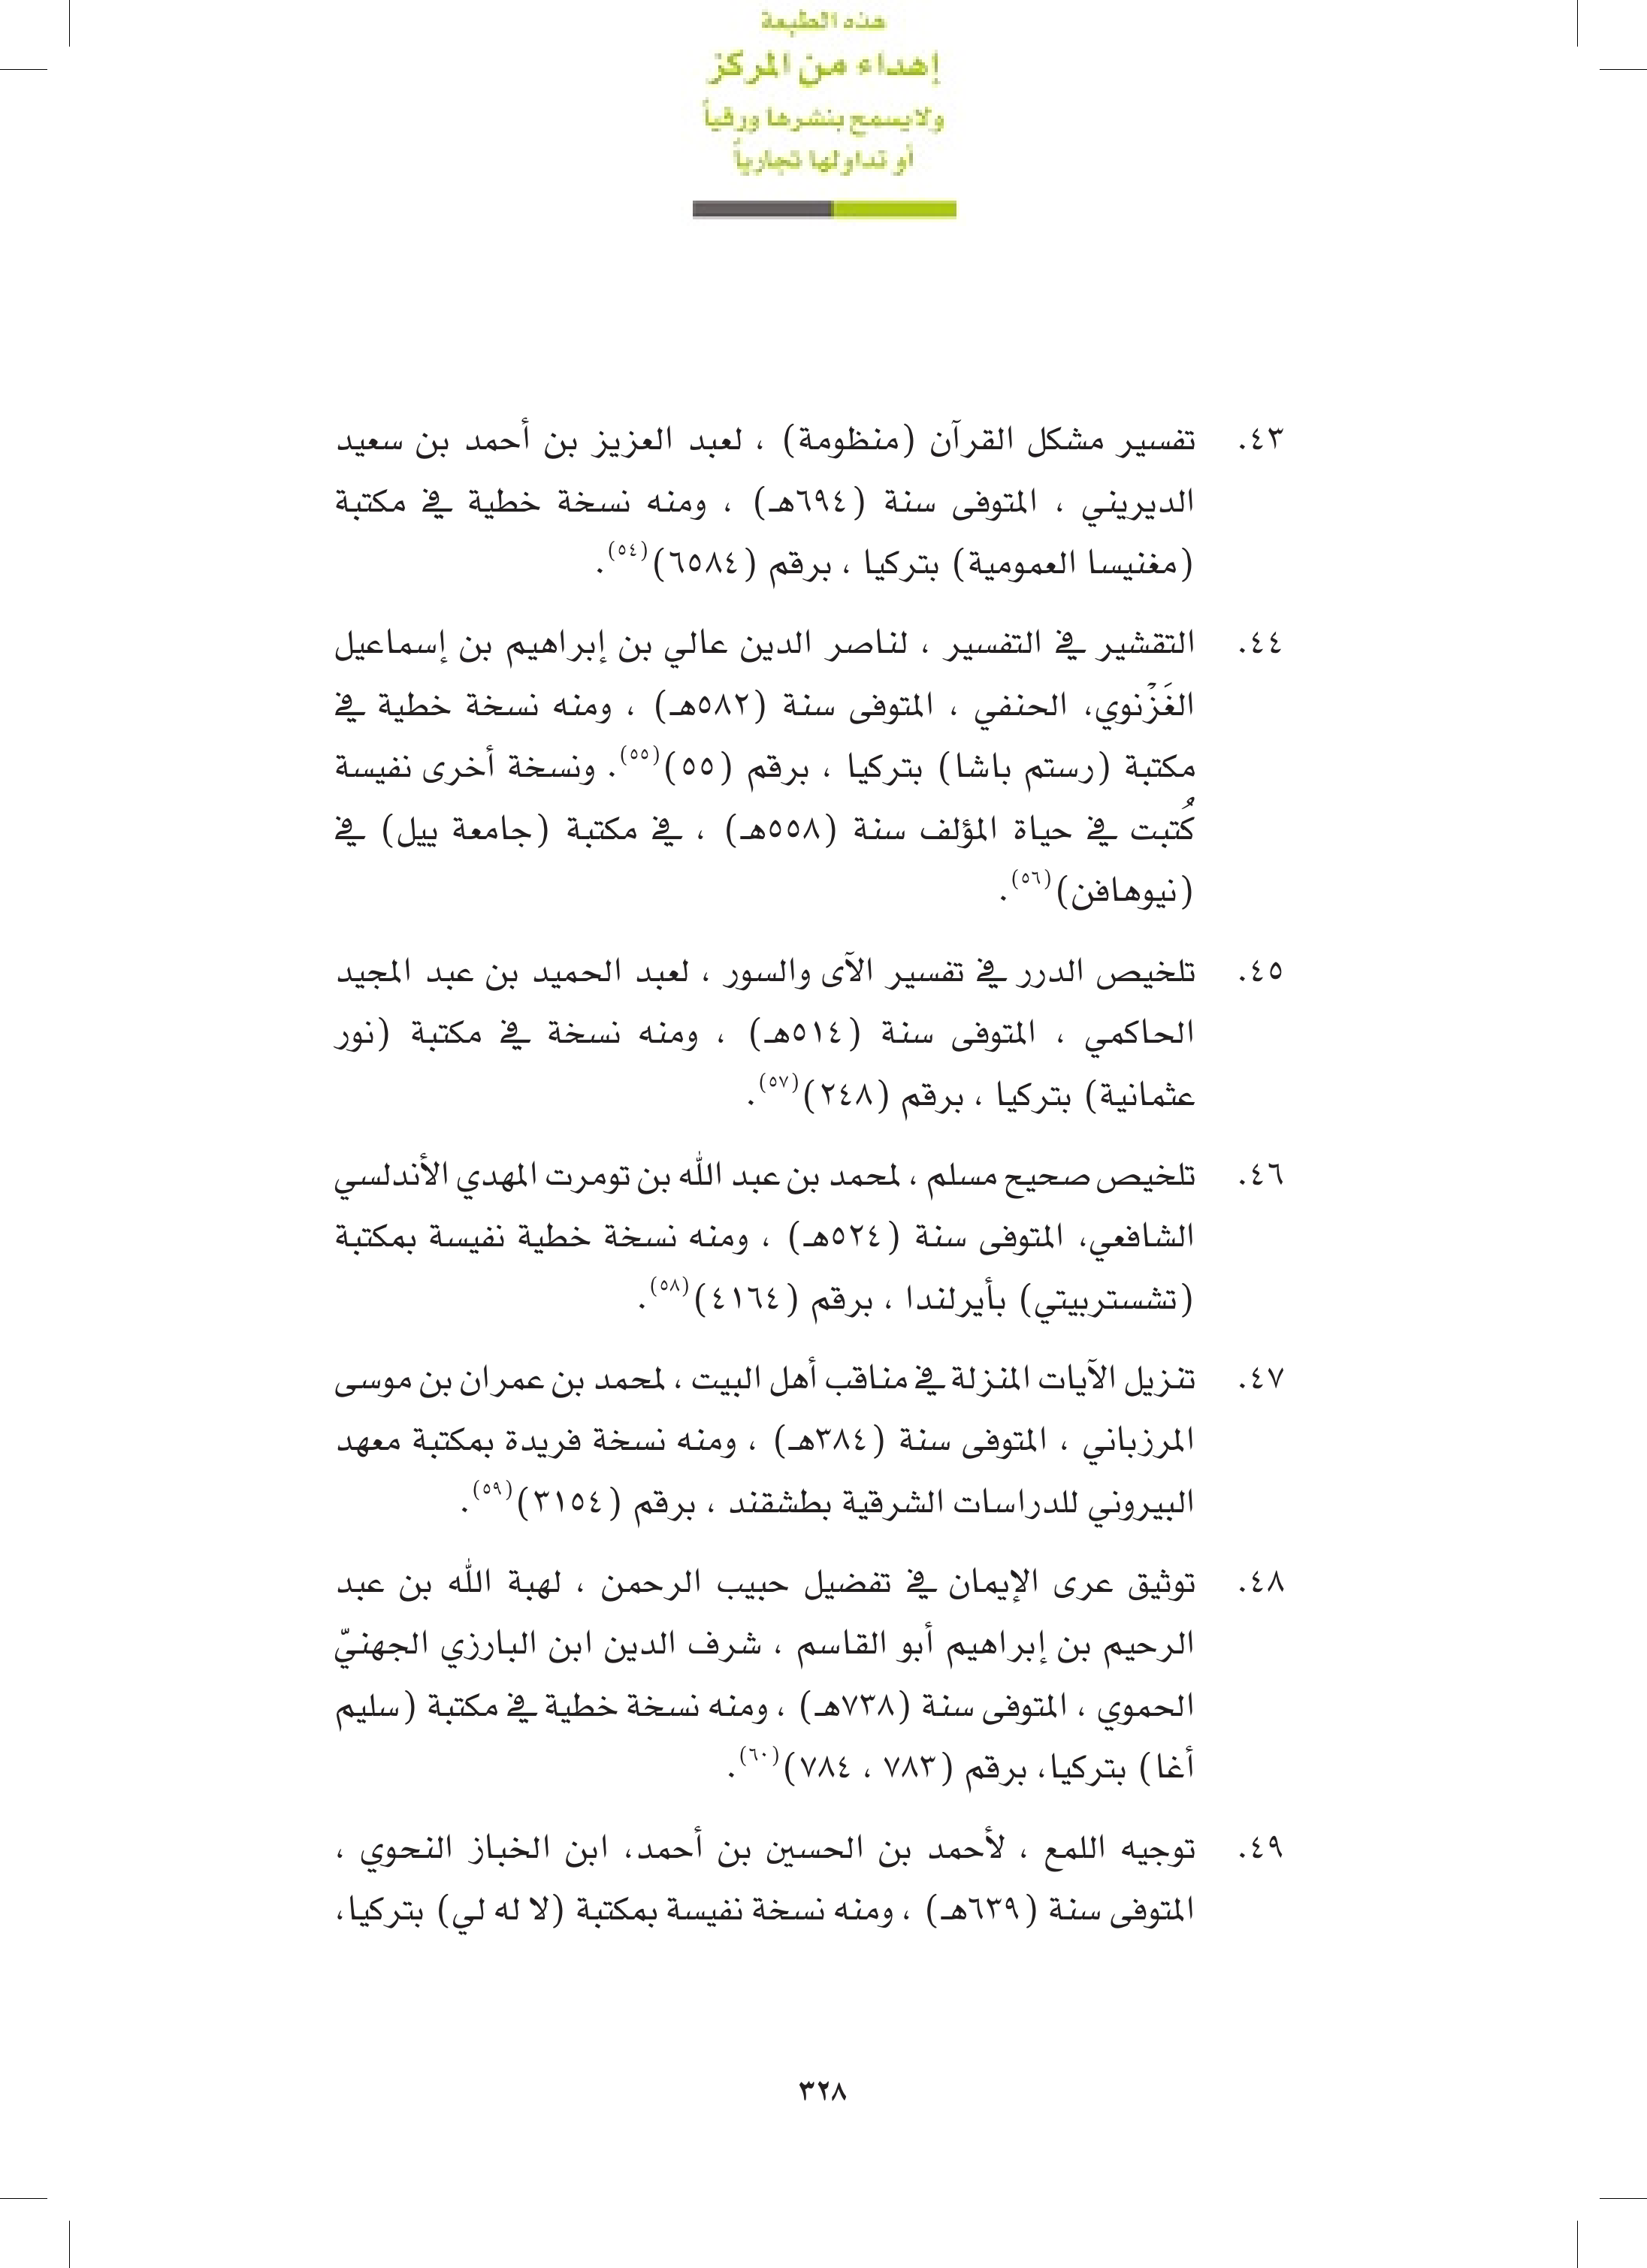 هذه الطبعة
إهداء من المركز
ولا يسمح بنشرها ورقياً
أو تداولها تجارياً
٤٣. تفسير مشكل القرآن (منظومة) ، لعبد العزيز بن أحمد بن سعيد
الديريني ، المتوفى سنة (٦٩٤هـ) ، ومنه نسخة خطية في مكتبة
(مغنيسا العمومية) بتركيا ، برقم (٦٥٨٤)(٥٤).
٤٤. التقشير في التفسير ، لناصر الدين عالي بن إبراهيم بن إسماعيل
الغَزْنوي، الحنفي ، المتوفى سنة (٥٨٢هـ) ، ومنه نسخة خطية في
مكتبة (رستم باشا) بتركيا ، برقم (٥٥)(٥٥). ونسخة أخرى نفيسة
كُتبت في حياة المؤلف سنة (٥٥٨هـ) ، في مكتبة (جامعة ييل) في
(نيوهافن)(٥٦).
٤٥. تلخيص الدرر في تفسير الآى والسور ، لعبد الحميد بن عبد المجيد
الحاكمي ، المتوفى سنة (٥١٤هـ) ، ومنه نسخة في مكتبة (نور
عثمانية) بتركيا ، برقم (٢٤٨)(٥٧).
٤٦. تلخيص صحيح مسلم ، لمحمد بن عبد الله بن تومرت المهدي الأندلسي
الشافعي، المتوفى سنة (٥٢٤هـ) ، ومنه نسخة خطية نفيسة بمكتبة
(تشستربيتي) بأيرلندا ، برقم (٤١٦٤)(٥٨).
٤٧. تنزيل الآيات المنزلة في مناقب أهل البيت ، لمحمد بن عمران بن موسى
المرزباني ، المتوفى سنة (٣٨٤هـ) ، ومنه نسخة فريدة بمكتبة معهد
البيروني للدراسات الشرقية بطشقند ، برقم (٣١٥٤)(٥٩).
٤٨. توثيق عرى الإيمان في تفضيل حبيب الرحمن ، لهبة الله بن عبد
الرحيم بن إبراهيم أبو القاسم ، شرف الدين ابن البارزي الجهنيّ
الحموي ، المتوفى سنة (٧٣٨هـ) ، ومنه نسخة خطية في مكتبة (سليم
أغا) بتركيا، برقم (٧٨٣ ، ٧٨٤)(٦٠).
٤٩. توجيه اللمع ، لأحمد بن الحسين بن أحمد، ابن الخباز النحوي ،
المتوفى سنة (٦٣٩هـ) ، ومنه نسخة نفيسة بمكتبة (لا له لي) بتركيا،
٣٢٨